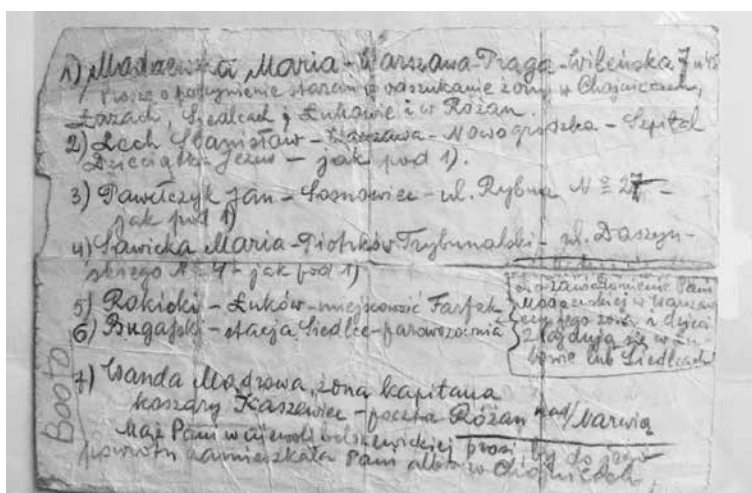 1) Mądzewska Maria - Warszawa-Praga - Wileńska 7 m
Proszę o poczynienie starań w odszukanie żony w Chojniczkach,
Łazach, Siedlcach, Łukowie i w Różan.
2) Lech Stanisław - Warszawa - Nowogrodzka - Szpital
Dzieciątka Jezus - jak pod 1).
3) Pawełczyk Jan - Sosnowiec - ul. Rybna № 27 -
jak pod 1)
4) Sawicka Maria - Piotrków Trybunalski - ul. Daszyń-
skiego № 4 - jak pod 1)
5) Rokicki - Łuków - miejscowość Farfak
6) Bugajski - stacja Siedlce - parowozownia
o zawiadomienie Pani
w Warszaw
czy jego żona i dzieci
znajdują się w Łu-
kowie lub Siedlcach
7) Wanda Mądrowa, żona kapitana
koszary Kaszewiec - poczta Różan nad/Narwią
Mąż Pani w niewoli bolszewickiej prosi, by do jego
powrotu zamieszkała Pani albo w
Booto